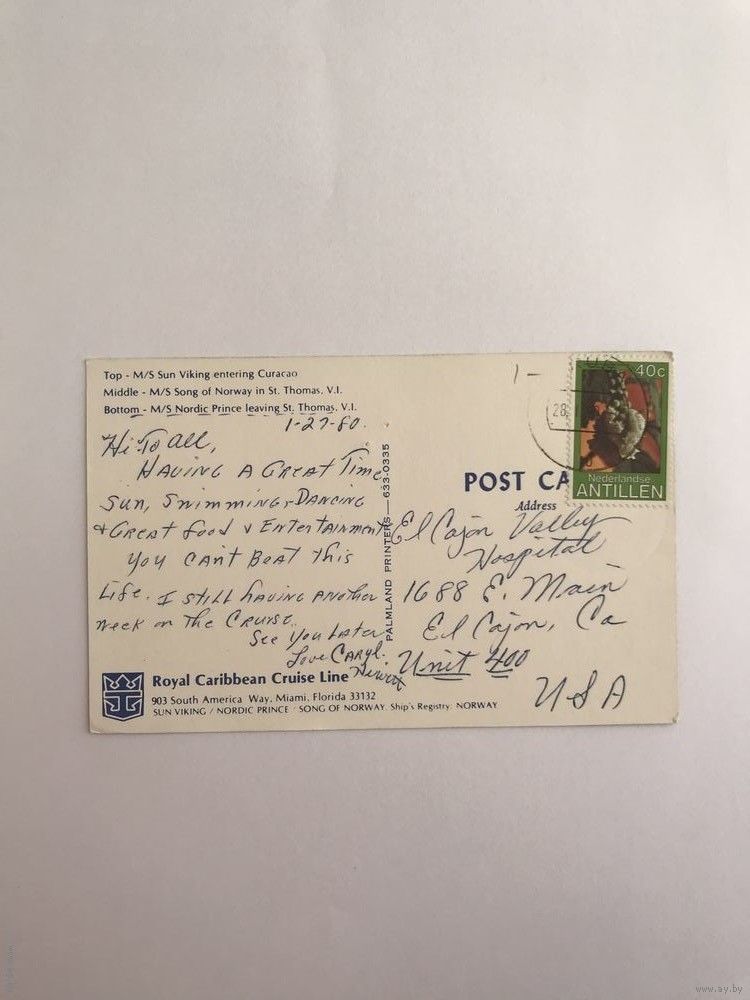 Top - M/S Sun Viking entering Curacao
Middle - M/S Song of Norway in St. Thomas, V.I.
Bottom - M/S Nordic Prince leaving St. Thomas, V.I.
1-27-80.
Hi To All,
HAVING A GREAT Time
Sun, Swimming, DANCING
& GREAT food & EnterTAinmenT
You CAN'T BeAT This
Life. I STill hAving Another
week on The Cruise.
See You Later
Love CARYL.
PALMLAND PRINTERS—633-0335
1-
28.
40c
Nederlandse
ANTILLEN
POST CA
Address
El Cajon Valley
Hospital
1688 E. Main
El Cajon, Ca
Unit 400
USA
Royal Caribbean Cruise Line
903 South America Way, Miami, Florida 33132
SUN VIKING / NORDIC PRINCE / SONG OF NORWAY. Ship's Registry: NORWAY
www.ay.by